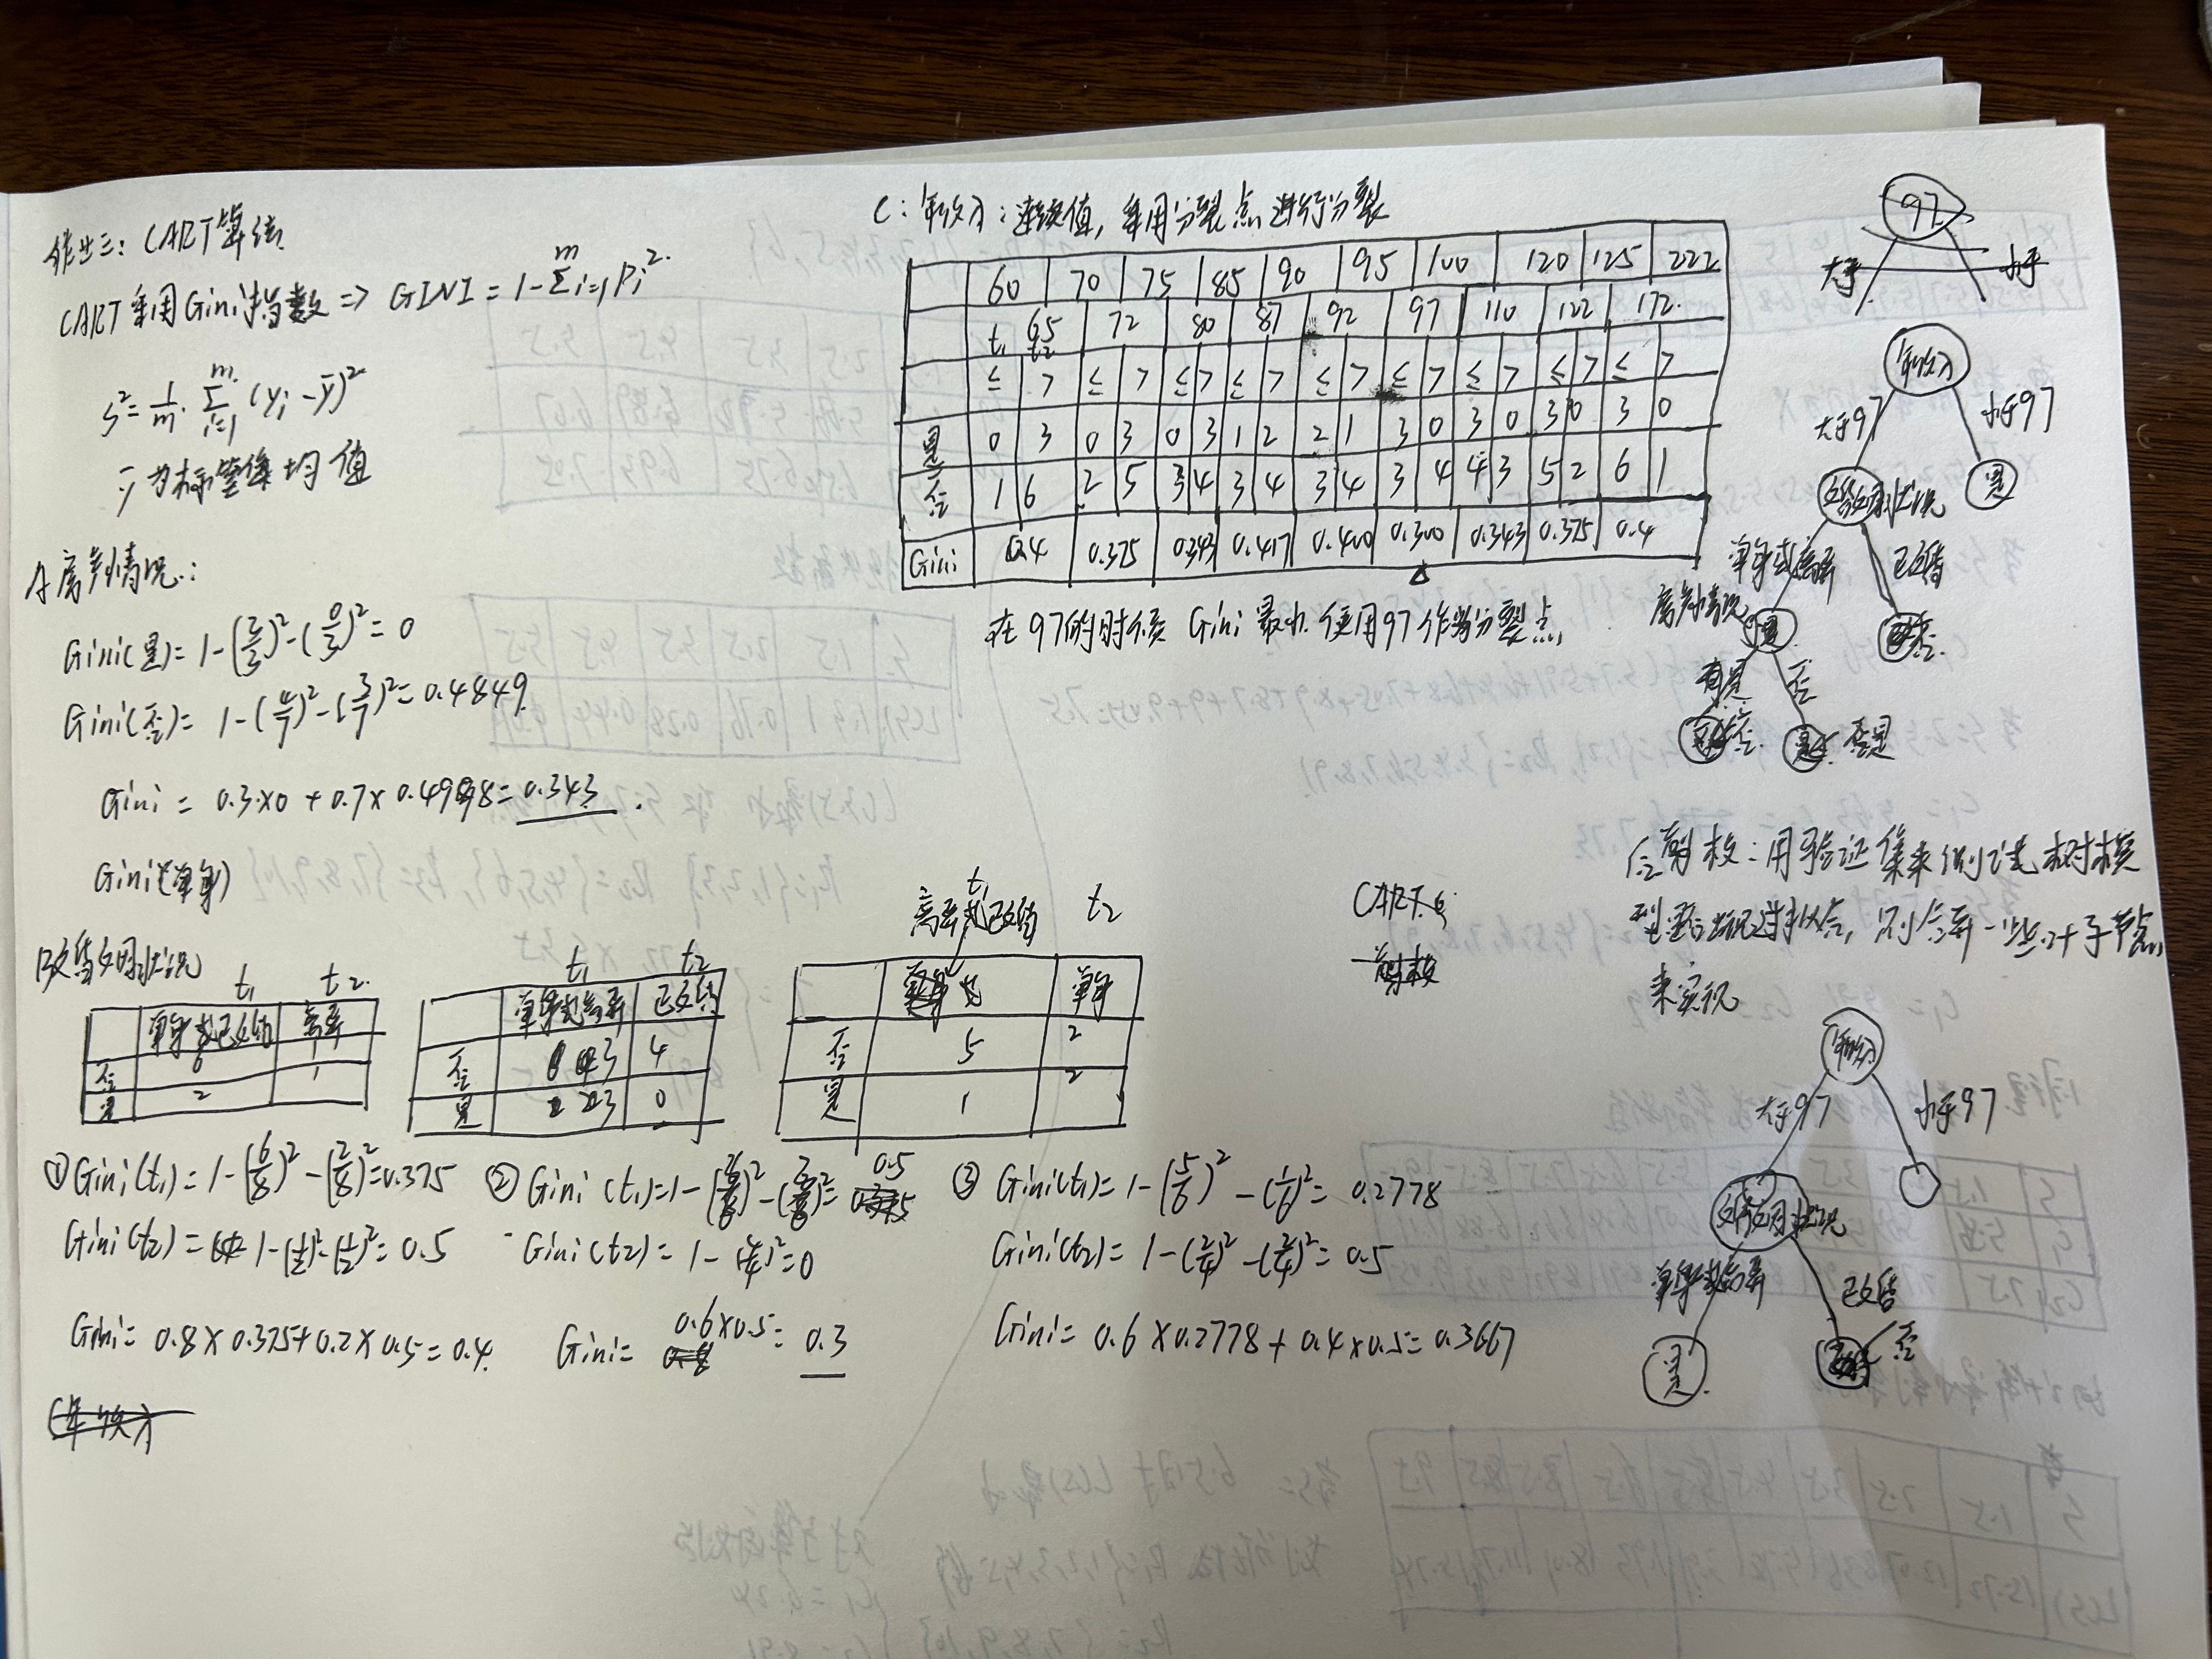 作业三：CART算法
CART采用Gini指数 => GINI = 1-Σᵐi=1 Pi².
s² = 1/m · Σᵐi=1 (yi - ȳ)²
ȳ为标签值均值
A 房产情况：
Gini(是) = 1-(3/3)²-(0/3)² = 0
Gini(否) = 1-(4/7)²-(3/7)² = 0.4849
Gini = 0.3×0 + 0.7×0.4898 = 0.343.
Gini(单身)
B 婚姻状况
t1 t2
单身或已婚 离异
否 6 1
是 2 1
t1 t2
单身或离异 已婚
否 3 4
是 3 0
离异或已婚 t1 t2
单身
否 5 2
是 1 2
① Gini(t1) = 1-(6/8)²-(2/8)² = 0.375
Gini(t2) = 1-(1/2)²-(1/2)² = 0.5
Gini = 0.8×0.375+0.2×0.5 = 0.4.
② Gini(t1) = 1-(3/6)²-(3/6)² = 0.5
Gini(t2) = 1-(4/4)² = 0
Gini = 0.6×0.5 = 0.3
③ Gini(t1) = 1-(5/6)²-(1/6)² = 0.2778
Gini(t2) = 1-(2/4)²-(2/4)² = 0.5
Gini = 0.6×0.2778+0.4×0.5 = 0.3667
(年收入)
C：年收入：连续值，采用分裂点进行分裂
60 70 75 85 90 95 100 120 125 222
65 72 80 87 92 97 110 122 172.
t1 t2
≤ > ≤ > ≤ > ≤ > ≤ > ≤ > ≤ > ≤ > ≤ >
是 0 3 0 3 0 3 1 2 2 1 3 0 3 0 3 0 3 0
否 1 6 2 5 3 4 3 4 3 4 3 4 4 3 5 2 6 1
Gini 0.4 0.375 0.343 0.417 0.400 0.300 0.343 0.375 0.4
在97的时候 Gini最小 使用97作为分裂点
97
大于 小于
年收入
大于97 小于97
婚姻状况 是
单身或离异 已婚
房产情况 否
是 否
否 是
CART
剪枝
后剪枝：用验证集来测试 树模
型是否出现过拟合，
来实现
年收入
大于97 小于97
婚姻状况
单身或离异 已婚
是 否